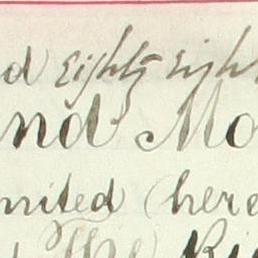 d Eighty Eigh
nd Mo
mited (here
The Rig